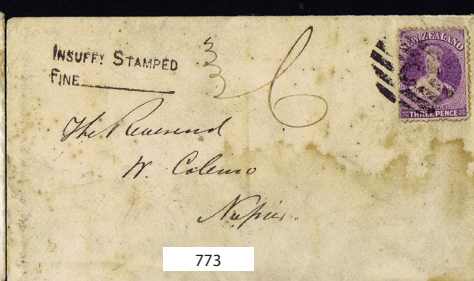 INSUFFY STAMPED
FINE
6
NEW ZEALAND
THREE PENCE
The Reverend
W. Colenso
Napier.
773